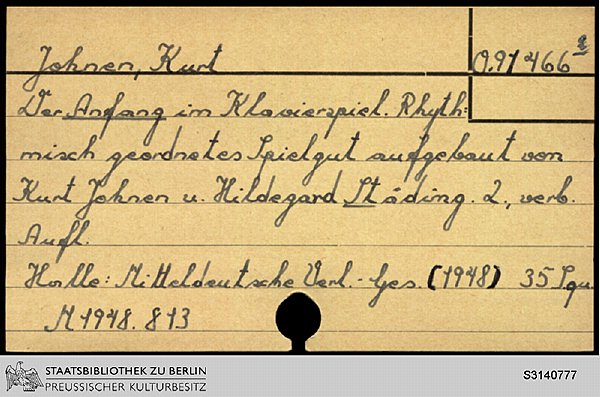 Johnen, Kurt
O.91466 a
Der Anfang im Klavierspiel. Rhyth=
misch geordnetes Spielgut aufgebaut von
Kurt Johnen u. Hildegard Städing. 2., verb.
Aufl.
Halle: Mitteldeutsche Verl.-Ges. (1948) 35 S qu
M 1948. 813
STAATSBIBLIOTHEK ZU BERLIN
PREUSSISCHER KULTURBESITZ
S3140777